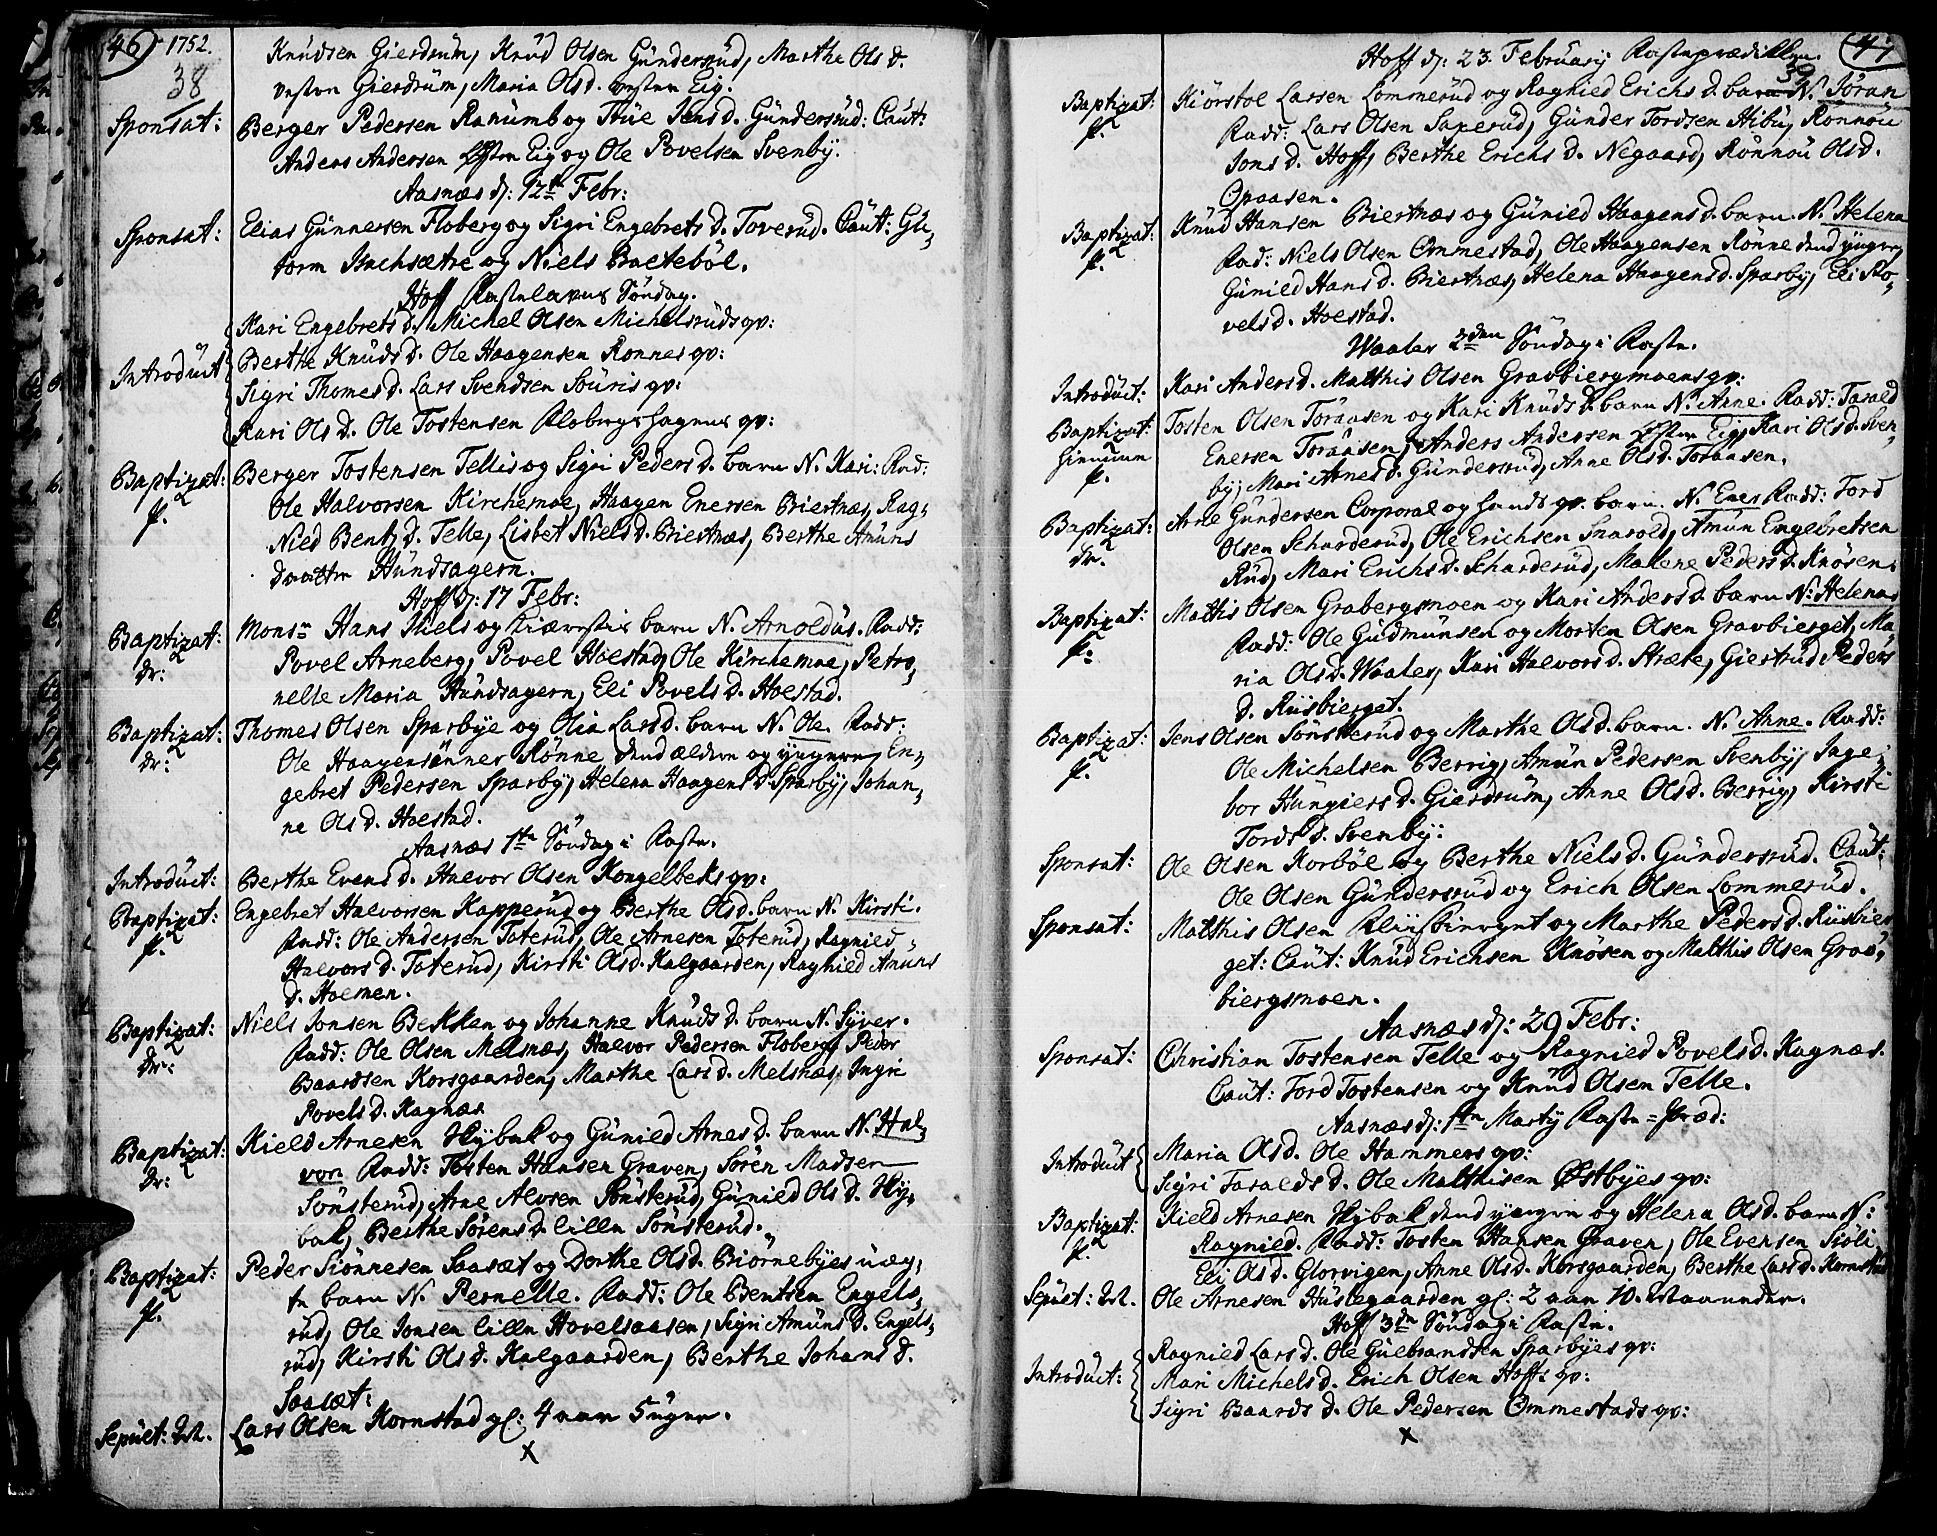 46 1752.
38
Knudsen Gierdrum, Knud Olsen Gundersrud, Marthe Ols d.
vestre Gierdrum, Maria Olsd. vestre Eig.
Sponsat: Berger Pedersen Ranum og Tüe Jens d. Gundersrud: Caut:
Anders Andersen Østre Eig og Ole Povelsen Svenby.
Aasnæs d: 12te Febr:
Sponsat: Elias Gunnersen Floberg og Sigri Engebrets d. Toverud. Caut: Gu-
torm Bachsætre og Niels Brateböl.
Hoff Fastelavns Söndag.
Kari Engebrets d. Michel Olsen Michelsruds qv:
Introduct Berthe Knuds d. Ole Haagensen Rønnes qv:
Sigri Thomes d. Lars Svendsen Souris qv:
Kari Ols d. Ole Tostensen Flobergshagens qv:
Baptizat: p. Berger Tostensen Tellis og Sigri Peders d. barn N. Kari: Fad:
Ole Halvorsen Kirchemoe, Haagen Enersen Briestnæs, Rag-
nied Bentz d. Telle, Lisbet Niels d. Briestnæs, Berthe Amuns
daatter Hundsagern.
Hoff d: 17 Febr:
Baptizat: dr: Monsr Hans Niels og Kiærestis barn N. Arnoldus. Fadd:
Povel Arneberg, Povel Hoestad, Ole Kirchemoe, Petro-
nelle Maria Hundsagern, Eli Povels d. Hoestad.
Baptizat: dr: Thomes Olsen Sparbye og Olia Lars d. barn N. Ole. Fadd:
Ole Haagensönner Rönne dend ældere og yngere, En-
gebret Pedersen Sparby, Helena Haagens d. Sparby, Johan-
ne Ols d. Hoestad.
Aasnæs 1te Söndag i Faste.
Introduct: Berthe Evens d. Halvor Olsen Kongelbeks qv:
Baptizat: p. Engebret Halvorsen Kapperud og Berthe Olsd. barn N. Kirsti.
Fadd: Ole Andersen Toterud, Ole Arnesen Toterud, Ragnied
Halvors d. Toterud, Kirsti Olsd. Kalgaarden, Ragnied Amuns
d. Hoemen.
Baptizat: dr: Niels Jonsen Bekken og Johanne Knuds d. barn N. Syver.
Fadd: Ole Olsen Melsnæs, Halvor Pedersen Floberg, Peder
Baardsen Korsgaarden, Marthe Lars d. Melsnæs, Ingri
Povels d. Kagnæs
Baptizat: dr: Kield Arnesen Hybak og Gunield Arnes d. barn N. Hal-
vor. Fadd: Tosten Hansen Graven, Sören Madsen
Sönsterud, Arne Alvsen Sönsterud, Gunield Ols d. Hy-
bak, Berthe Sörens d. lille Sönsterud.
Baptizat: p. Peder Siönnesen Saasæt og Dorthe Olsd. Biörnebyes uæg-
te barn N. Pernelle. Fadd: Ole Bentsen Engels-
rud, Ole Jonsen lille Hovelsaasen, Sigri Amuns d. Engels-
rud, Kirsti Ols d. Kalgaarden, Berthe Johans d.
Saasæt:
Sepult: M. Lars Olsen Kornstad gl: 4 aar 5 uger.
x
47
39
Hoff d: 23 Februarij Fasteprædikken.
Baptizat: p. Kiörstol Larsen Lommerud og Ragnied Erichs d. barn N. Jöran
Fadd: Lars Olsen Saxerud, Gunder Tordsen Hibu, Rönnou
Jons d. Hoff, Berthe Erichs d. Negaard, Rönnou Olsd.
Opaasen.
Baptizat: p. Knud Hansen Briestnæs og Gunield Haagens d. barn. N. Helena
Fad: Niels Olsen Ommestad, Ole Haagensen Rönne dend yngre,
Gunield Hans d. Briestnæs, Helena Haagens d. Sparby, Eli Po-
vels d. Hoestad.
Waaler 2den Söndag i Faste.
Introduct: Kari Anders d. Matthis Olsen Gravbiergmoens qv:
Baptizat: hiemme p. Tosten Olsen Toraasen og Kari Knuds d. barn N. Anne. Fadd: Tarald
Enersen Toraasen, Anders Andersen Østre Eig, Kari Olsd. Sven-
by, Mari Arnes d. Gundersrud, Anne Olsd. Toraasen.
Baptizat: dr. Arne Gundersen Corporal og hands qv. barn. N. Ener Fadd: Tord
Olsen Scharderud, Ole Erichsen Snarold, Amun Engebretsen
Rud, Mari Erichs d. Scharderud, Malene Peders d. Knösen.
Baptizat: p: Mathis Olsen Grabergsmoen og Kari Anders d. barn N. Helena
Fadd: Ole Gudmunsen og Morten Olsen Gravbierget, Ma-
ria Olsd. Waaler, Kari Halvors d. Stræte, Giertrud Peders
d. Riisbierget.
Baptizat: p. Jens Olsen Sönsterud og Marthe Olsd. barn. N. Anne. Fadd:
Ole Michelsen Berrig, Amun Pedersen Svenby, Inge-
bor Hungiers d. Gierdrum, Anne Olsd. Berrig, Kirsti
Tords d. Svenby:
Sponsat: Ole Olsen Korböl og Berthe Niels d. Gundersrud. Caut:
Ole Olsen Gundersrud og Erich Olsen Lommerud.
Sponsat: Matthis Olsen Riisbierget og Marthe Peders d. Riisbier
get: Caut: Knud Erichsen Knösen og Matthis Olsen Grav-
biergsmoen.
Aasnæs d: 29 Febr:
Sponsat: Christian Tostensen Telle og Ragnied Povels d. Kagnæs.
Caut: Tord Tostensen og Knud Olsen Telle.
Aasnæs d: 1te Martij Faste=Præd:
Introduct Maria Olsd. Ole Hammers qv:
Sigri Taralds d. Ole Matthisen Østbyes qv:
Baptizat: p. Kield Arnesen Hybak dend yngre og Helena Olsd. barn N:
Ragnied. Fadd: Tosten Hansen Graven, Ole Evensen Siöli,
Eli Olsd. Glorvigen, Anne Olsd. Korsgaarden, Berthe Lars d. Kornstad
Sepult: M. Ole Arnesen Huslegaarden gl: 2 aar 10. Maaneder.
Hoff 3de Söndag i Faste.
Ragnied Lars d. Ole Guebrandsen Sparbyes qv:
Introduct: Mari Michels d. Erich Olsen Hoffs qv:
Sigri Baards d. Ole Pedersen Ommestads qv:
x